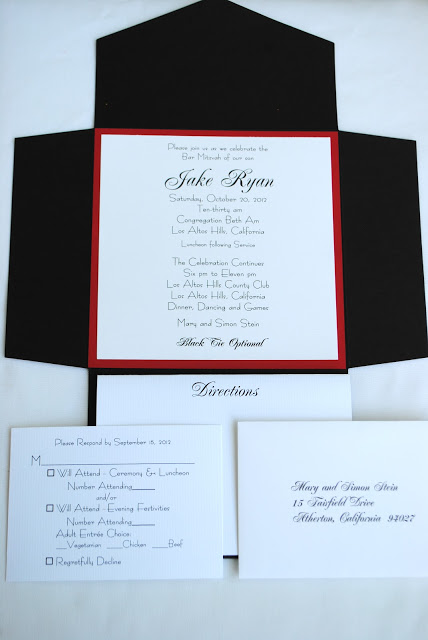 Please join us as we celebrate the
Bar Mitzvah of our son
Jake Ryan
Saturday, October 20, 2012
Ten-thirty am
Congregation Beth Am
Los Altos Hills, California
Luncheon following Service
The Celebration Continues
Six pm to Eleven pm
Los Altos Hills County Club
Los Altos Hills, California
Dinner, Dancing and Games
Mary and Simon Stein
Black Tie Optional
Directions
Please Respond by September 15, 2012
M
Will Attend - Ceremony & Luncheon
Number Attending
and/or
Will Attend - Evening Festivities
Number Attending
Adult Entrée Choice:
Vegetarian Chicken Beef
Regretfully Decline
Mary and Simon Stein
15 Fairfield Drive
Atherton, California 94027